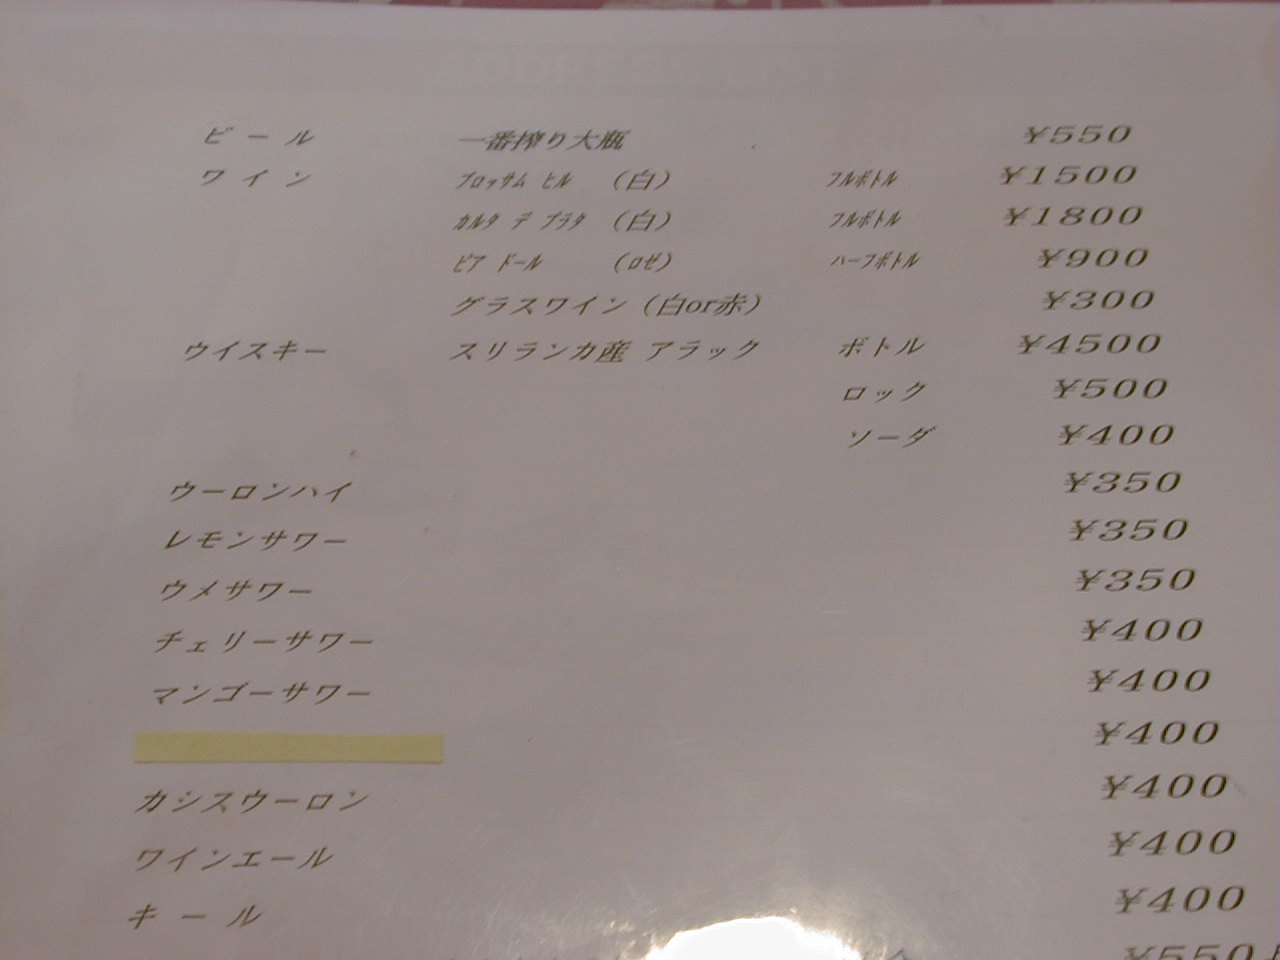 ビール 一番搾り大瓶 ¥550
ワイン ブロッサム ヒル (白) フルボトル ¥1500
カルタ デ プラタ (白) フルボトル ¥1800
ピア ドール (ロゼ) ハーフボトル ¥900
グラスワイン(白or赤) ¥300
ウイスキー スリランカ産 アラック ボトル ¥4500
ロック ¥500
ソーダ ¥400
ウーロンハイ ¥350
レモンサワー ¥350
ウメサワー ¥350
チェリーサワー ¥400
マンゴーサワー ¥400
¥400
カシスウーロン ¥400
ワインエール ¥400
キール ¥400
¥550